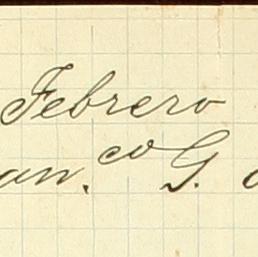 Febrero
an.co G.